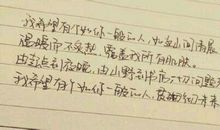 我希望有个如你一般的人，如山间清晨
温暖而不炙热，覆盖我所有肌肤。
由起点到夜晚，由山野到书房一切问题
我希望有个如你一般的人，贯彻未来